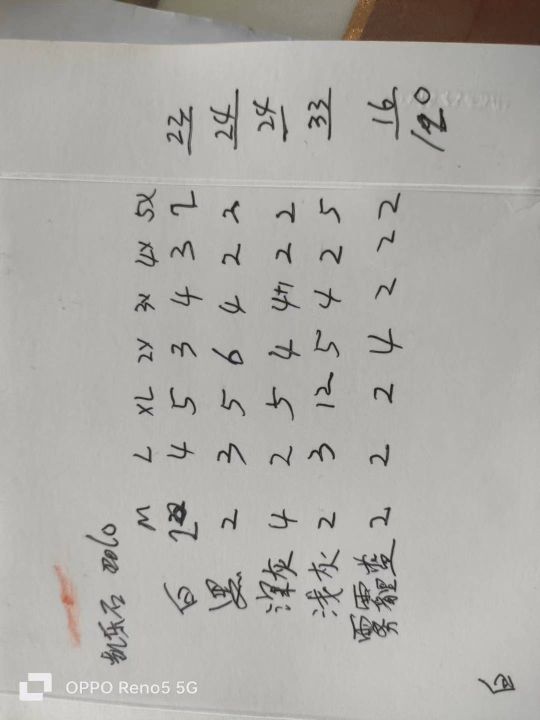 凯乐石 polo
M L XL 2X 3X 4X 5X
白 2 4 5 3 4 3 2 23
黑 2 3 5 6 4 2 2 24
深灰 4 2 5 4 4+1 2 2 24
浅灰 2 3 12 5 4 2 5 33
雾霾蓝 2 2 2 4 2 2 2 16
120
白
OPPO Reno5 5G